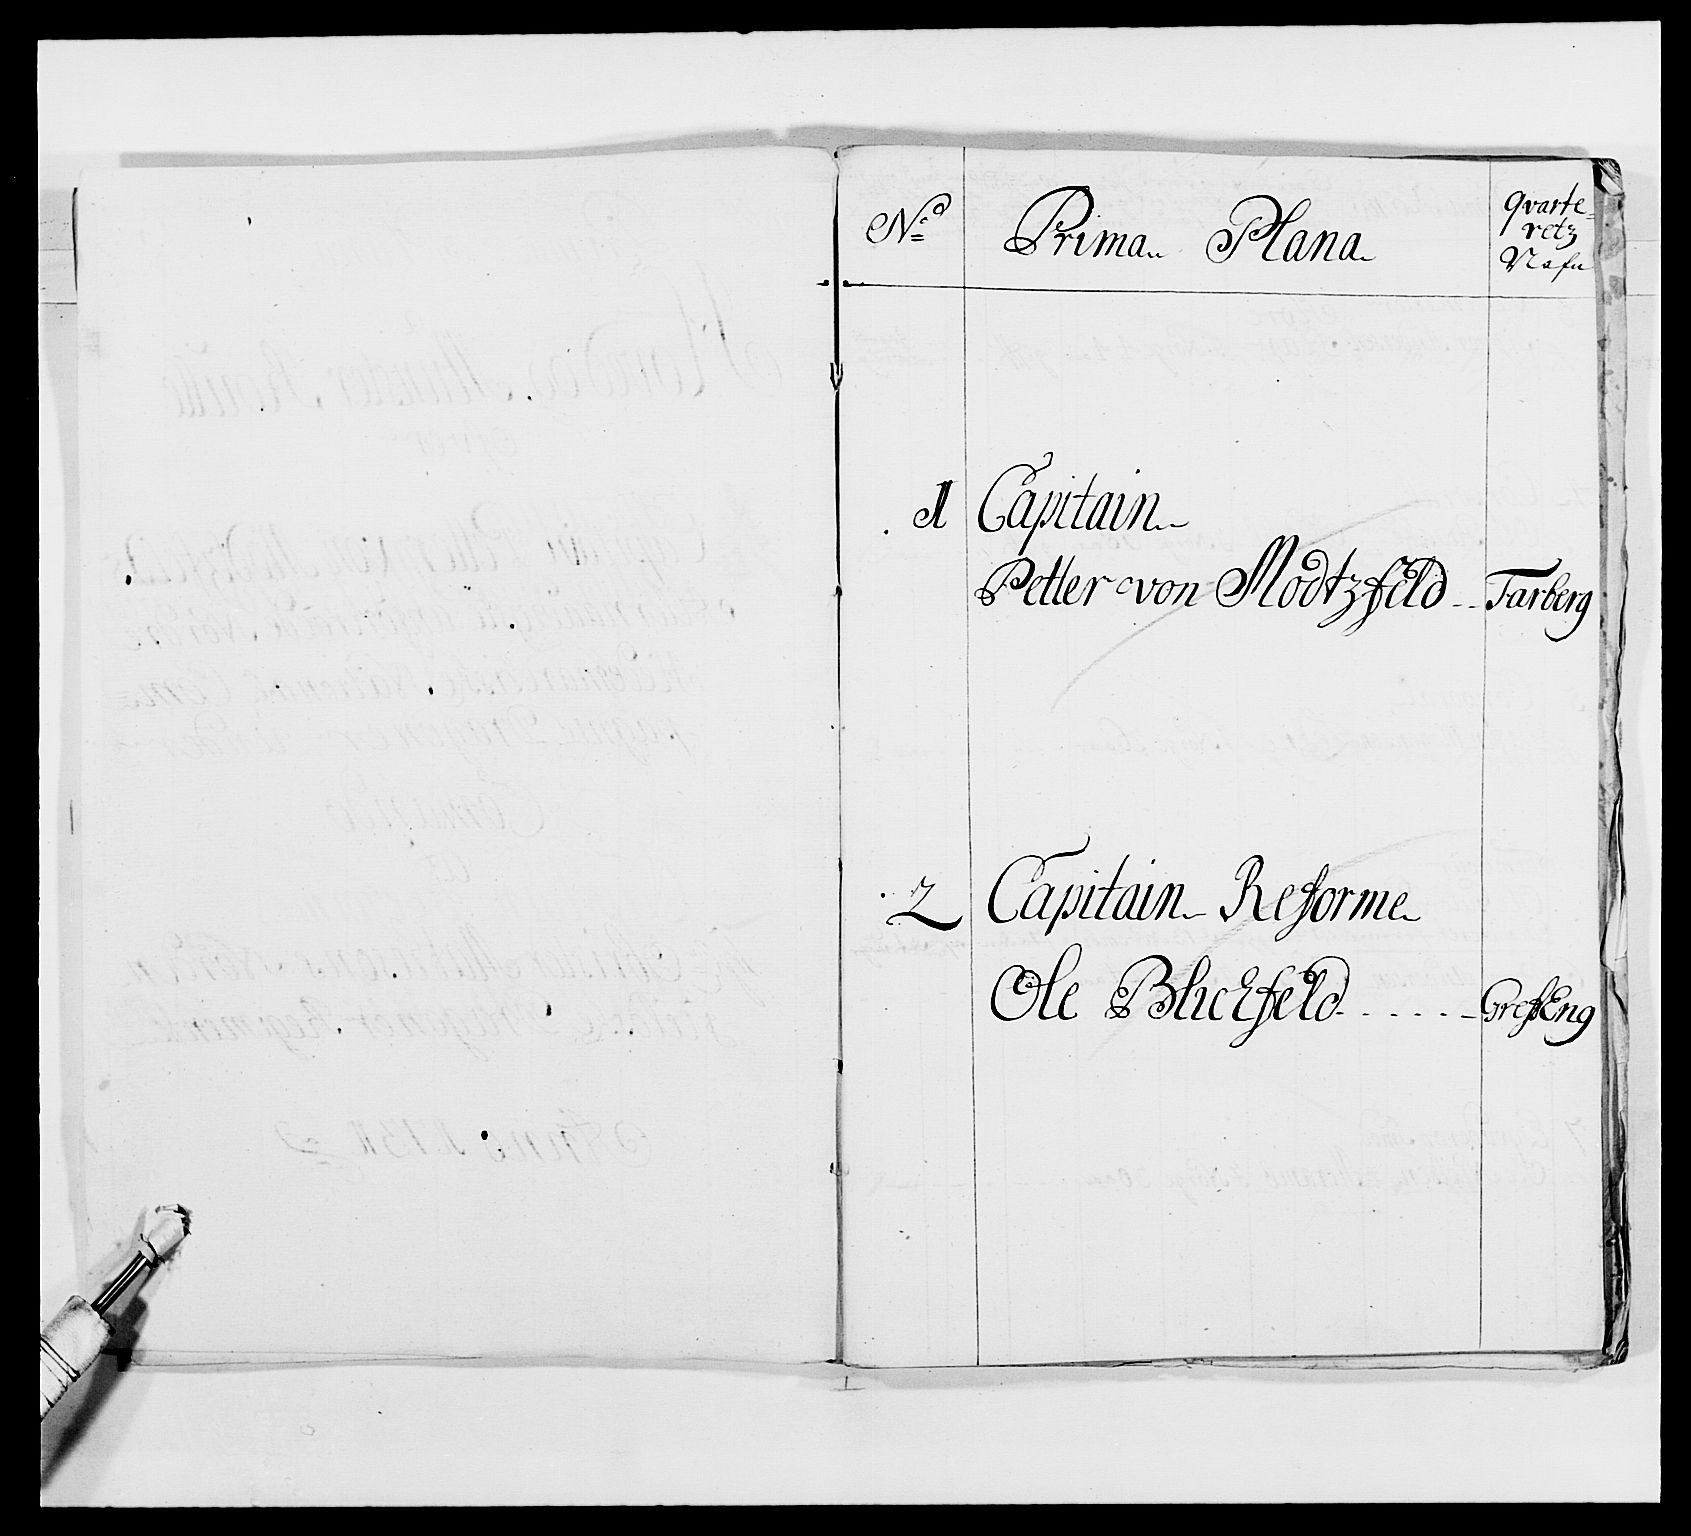 No Prima Plana qvarte=
retz
Nafn
1 Capitain
Petter von Modtzfeld Tarberg
2 Capitain Reforme
Ole Blichfeld Grefseng